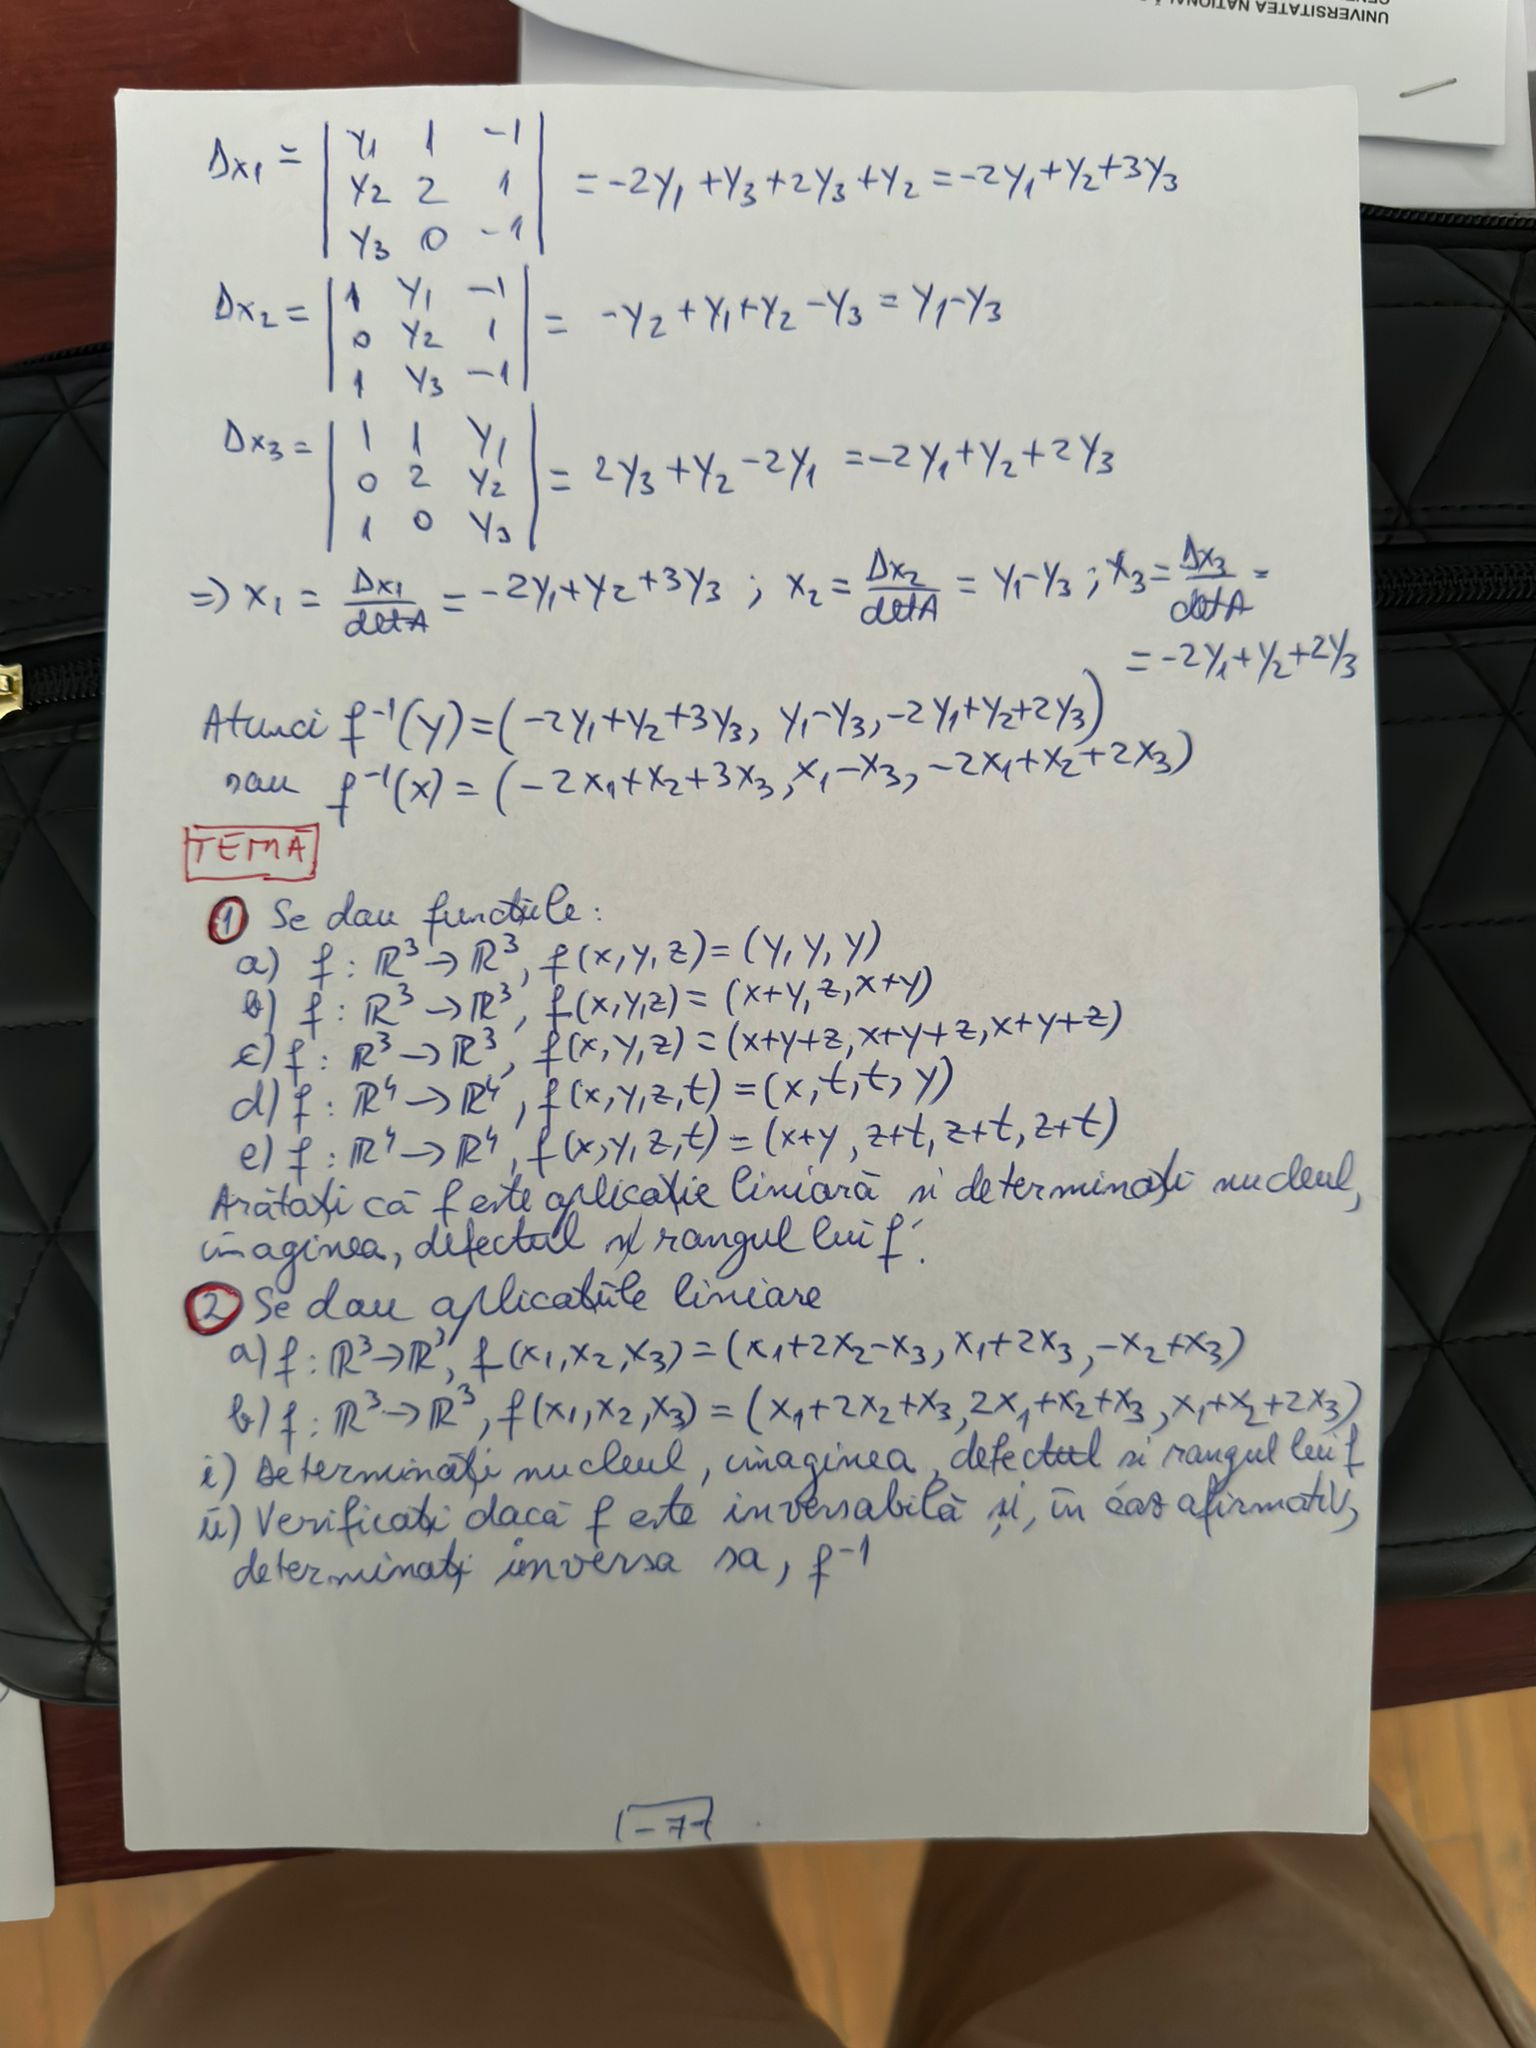 UNIVERSITATEA NAȚIONALĂ
Δx₁ = | y₁ 1 -1 |
| y₂ 2 1 | = -2y₁ + y₃ + 2y₃ + y₂ = -2y₁ + y₂ + 3y₃
| y₃ 0 -1 |
Δx₂ = | 1 y₁ -1 |
| 0 y₂ 1 | = -y₂ + y₁ + y₂ - y₃ = y₁ - y₃
| 1 y₃ -1 |
Δx₃ = | 1 1 y₁ |
| 0 2 y₂ | = 2y₃ + y₂ - 2y₁ = -2y₁ + y₂ + 2y₃
| 1 0 y₃ |
=> x₁ = Δx₁/detA = -2y₁ + y₂ + 3y₃ ; x₂ = Δx₂/detA = y₁ - y₃ ; x₃ = Δx₃/detA =
= -2y₁ + y₂ + 2y₃
Atunci f⁻¹(y) = (-2y₁ + y₂ + 3y₃, y₁ - y₃, -2y₁ + y₂ + 2y₃)
sau f⁻¹(x) = (-2x₁ + x₂ + 3x₃, x₁ - x₃, -2x₁ + x₂ + 2x₃)
TEMĂ
1 Se dau funcțiile:
a) f : ℝ³ → ℝ³, f(x, y, z) = (y, y, y)
b) f : ℝ³ → ℝ³, f(x, y, z) = (x+y, z, x+y)
c) f : ℝ³ → ℝ³, f(x, y, z) = (x+y+z, x+y+z, x+y+z)
d) f : ℝ⁴ → ℝ⁴, f(x, y, z, t) = (x, t, t, y)
e) f : ℝ⁴ → ℝ⁴, f(x, y, z, t) = (x+y, z+t, z+t, z+t)
Arătați că f este aplicație liniară și determinați nucleul,
imaginea, defectul și rangul lui f.
2 Se dau aplicațiile liniare
a) f : ℝ³ → ℝ³, f(x₁, x₂, x₃) = (x₁+2x₂-x₃, x₁+2x₃, -x₂+x₃)
b) f : ℝ³ → ℝ³, f(x₁, x₂, x₃) = (x₁+2x₂+x₃, 2x₁+x₂+x₃, x₁+x₂+2x₃)
i) Determinați nucleul, imaginea, defectul și rangul lui f
ii) Verificați dacă f este inversabilă și, în caz afirmativ,
determinați inversa sa, f⁻¹
-7-